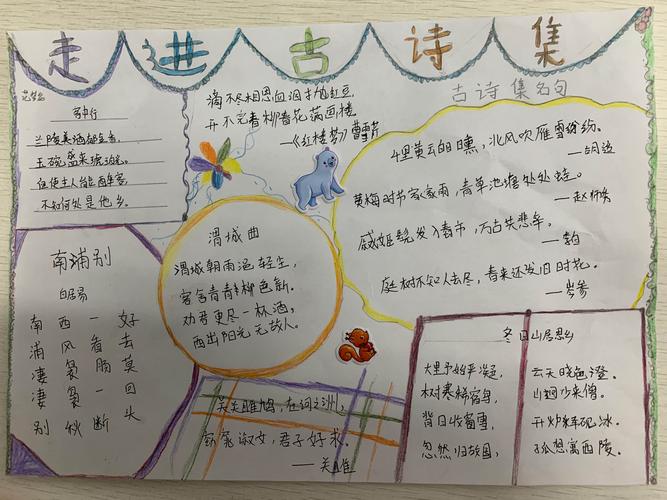 走进古诗集
客中行
兰陵美酒郁金香,
玉碗盛来琥珀光。
但使主人能醉客,
不知何处是他乡。
滴不尽相思血泪抛红豆,
开不完春柳春花满画楼
—《红楼梦》曹雪芹
古诗集名句
千里黄云白日曛,北风吹雁雪纷纷。
黄梅时节家家雨,青草池塘处处蛙。
—赵师秀
万古共悲辛。
庭树不知人去尽,春来还发旧时花。
—岑参
南浦别
白居易
南浦凄凄别
西风袅袅秋
一看肠一断
好去莫回头
渭城曲
渭城朝雨浥轻尘,
客舍青青柳色新。
劝君更尽一杯酒,
西出阳光无故人。
关关雎鸠,在河之洲,
窈窕淑女,君子好求。
—关雎
冬日山居思乡
大野始严凝,
云天晓色澄。
树寒稀宿鸟,
山迥少来僧。
背日收窗雪,
开炉释砚冰。
忽然归故国,
孤想寓西陵。